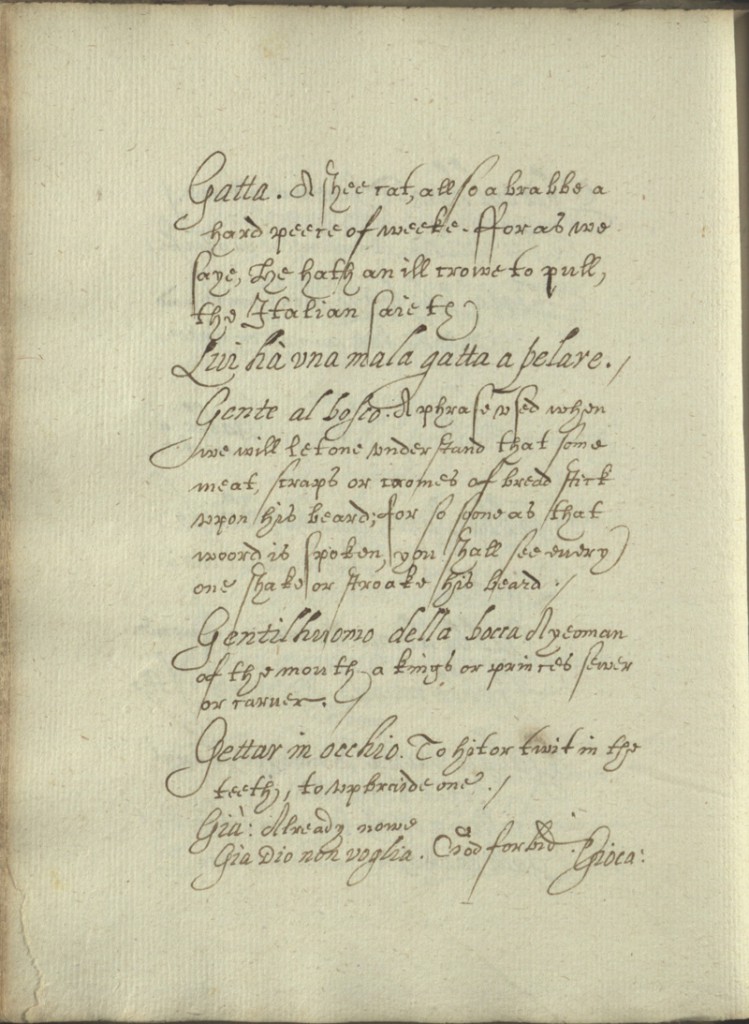 Gatta. A shee cat, allso a brabbe a
hard peece of weeke. ffor as we
saye, He hath an ill crowe to pull,
the Italian saieth
Lui hà vna mala gatta a pelare./
Gente al bosco. A phrase vsed when
we will let one vnderstand that some
meat, scraps or cromes of bread stick
vpon his beard; for so soone as that
woord is spoken, you shall see euery
one shake or stroake his beard./
Gentilhuomo della bocca A yeoman
of the mouth, a kings or princes sewer
or caruer./
Gettar in occhio. To hit or twit in the
teeth, to vpbraide one./
Già: Already nowe
Gia Dio non voglia. God forbid. Gioca: